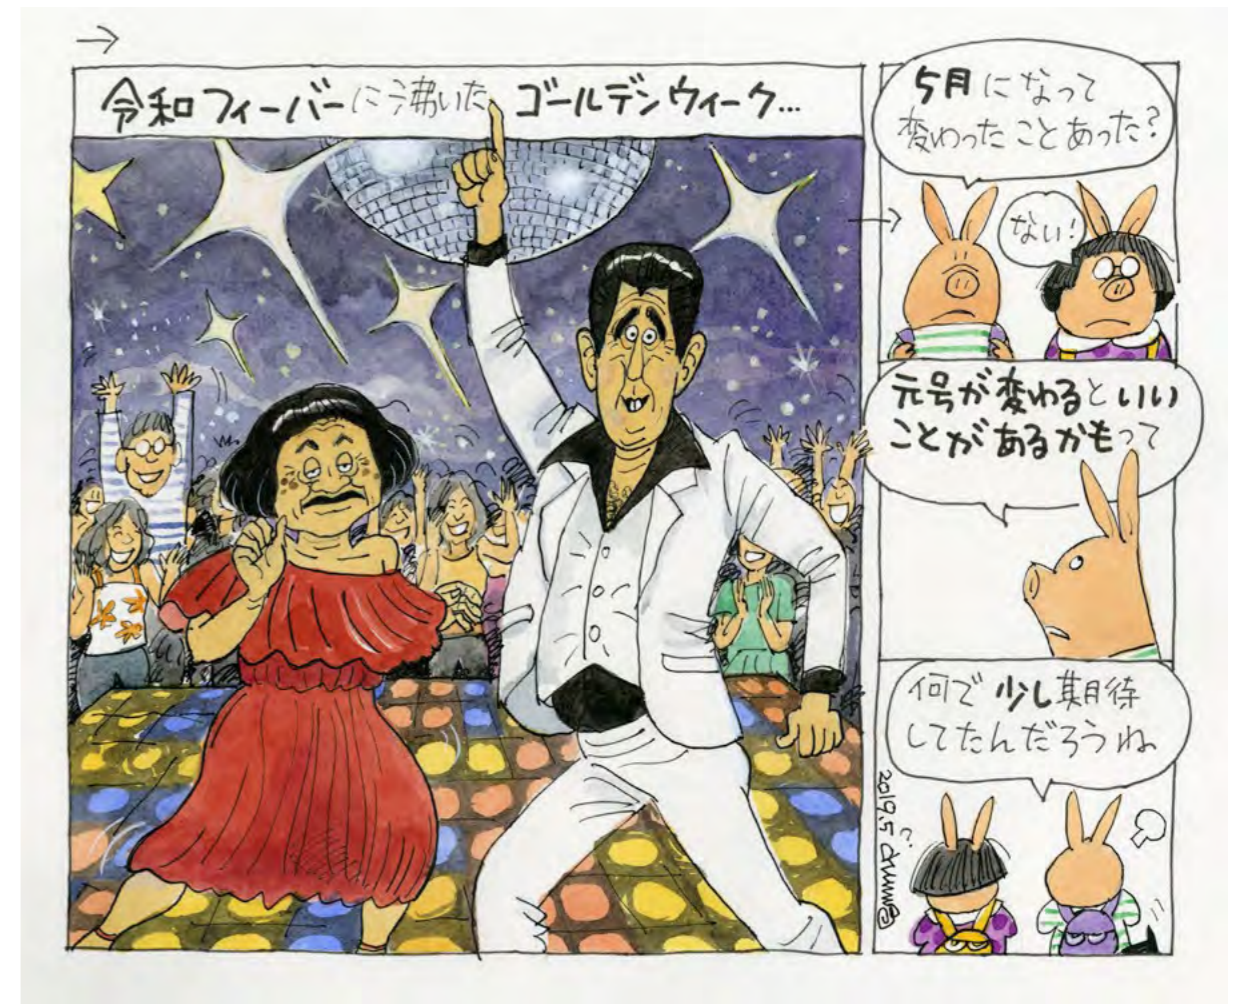 令和フィーバーに沸いた ゴールデンウィーク...
5月になって
変わったことあった?
ない!
元号が変わるといい
ことがあるかもって
何で少し期待
してたんだろうね
2019.5